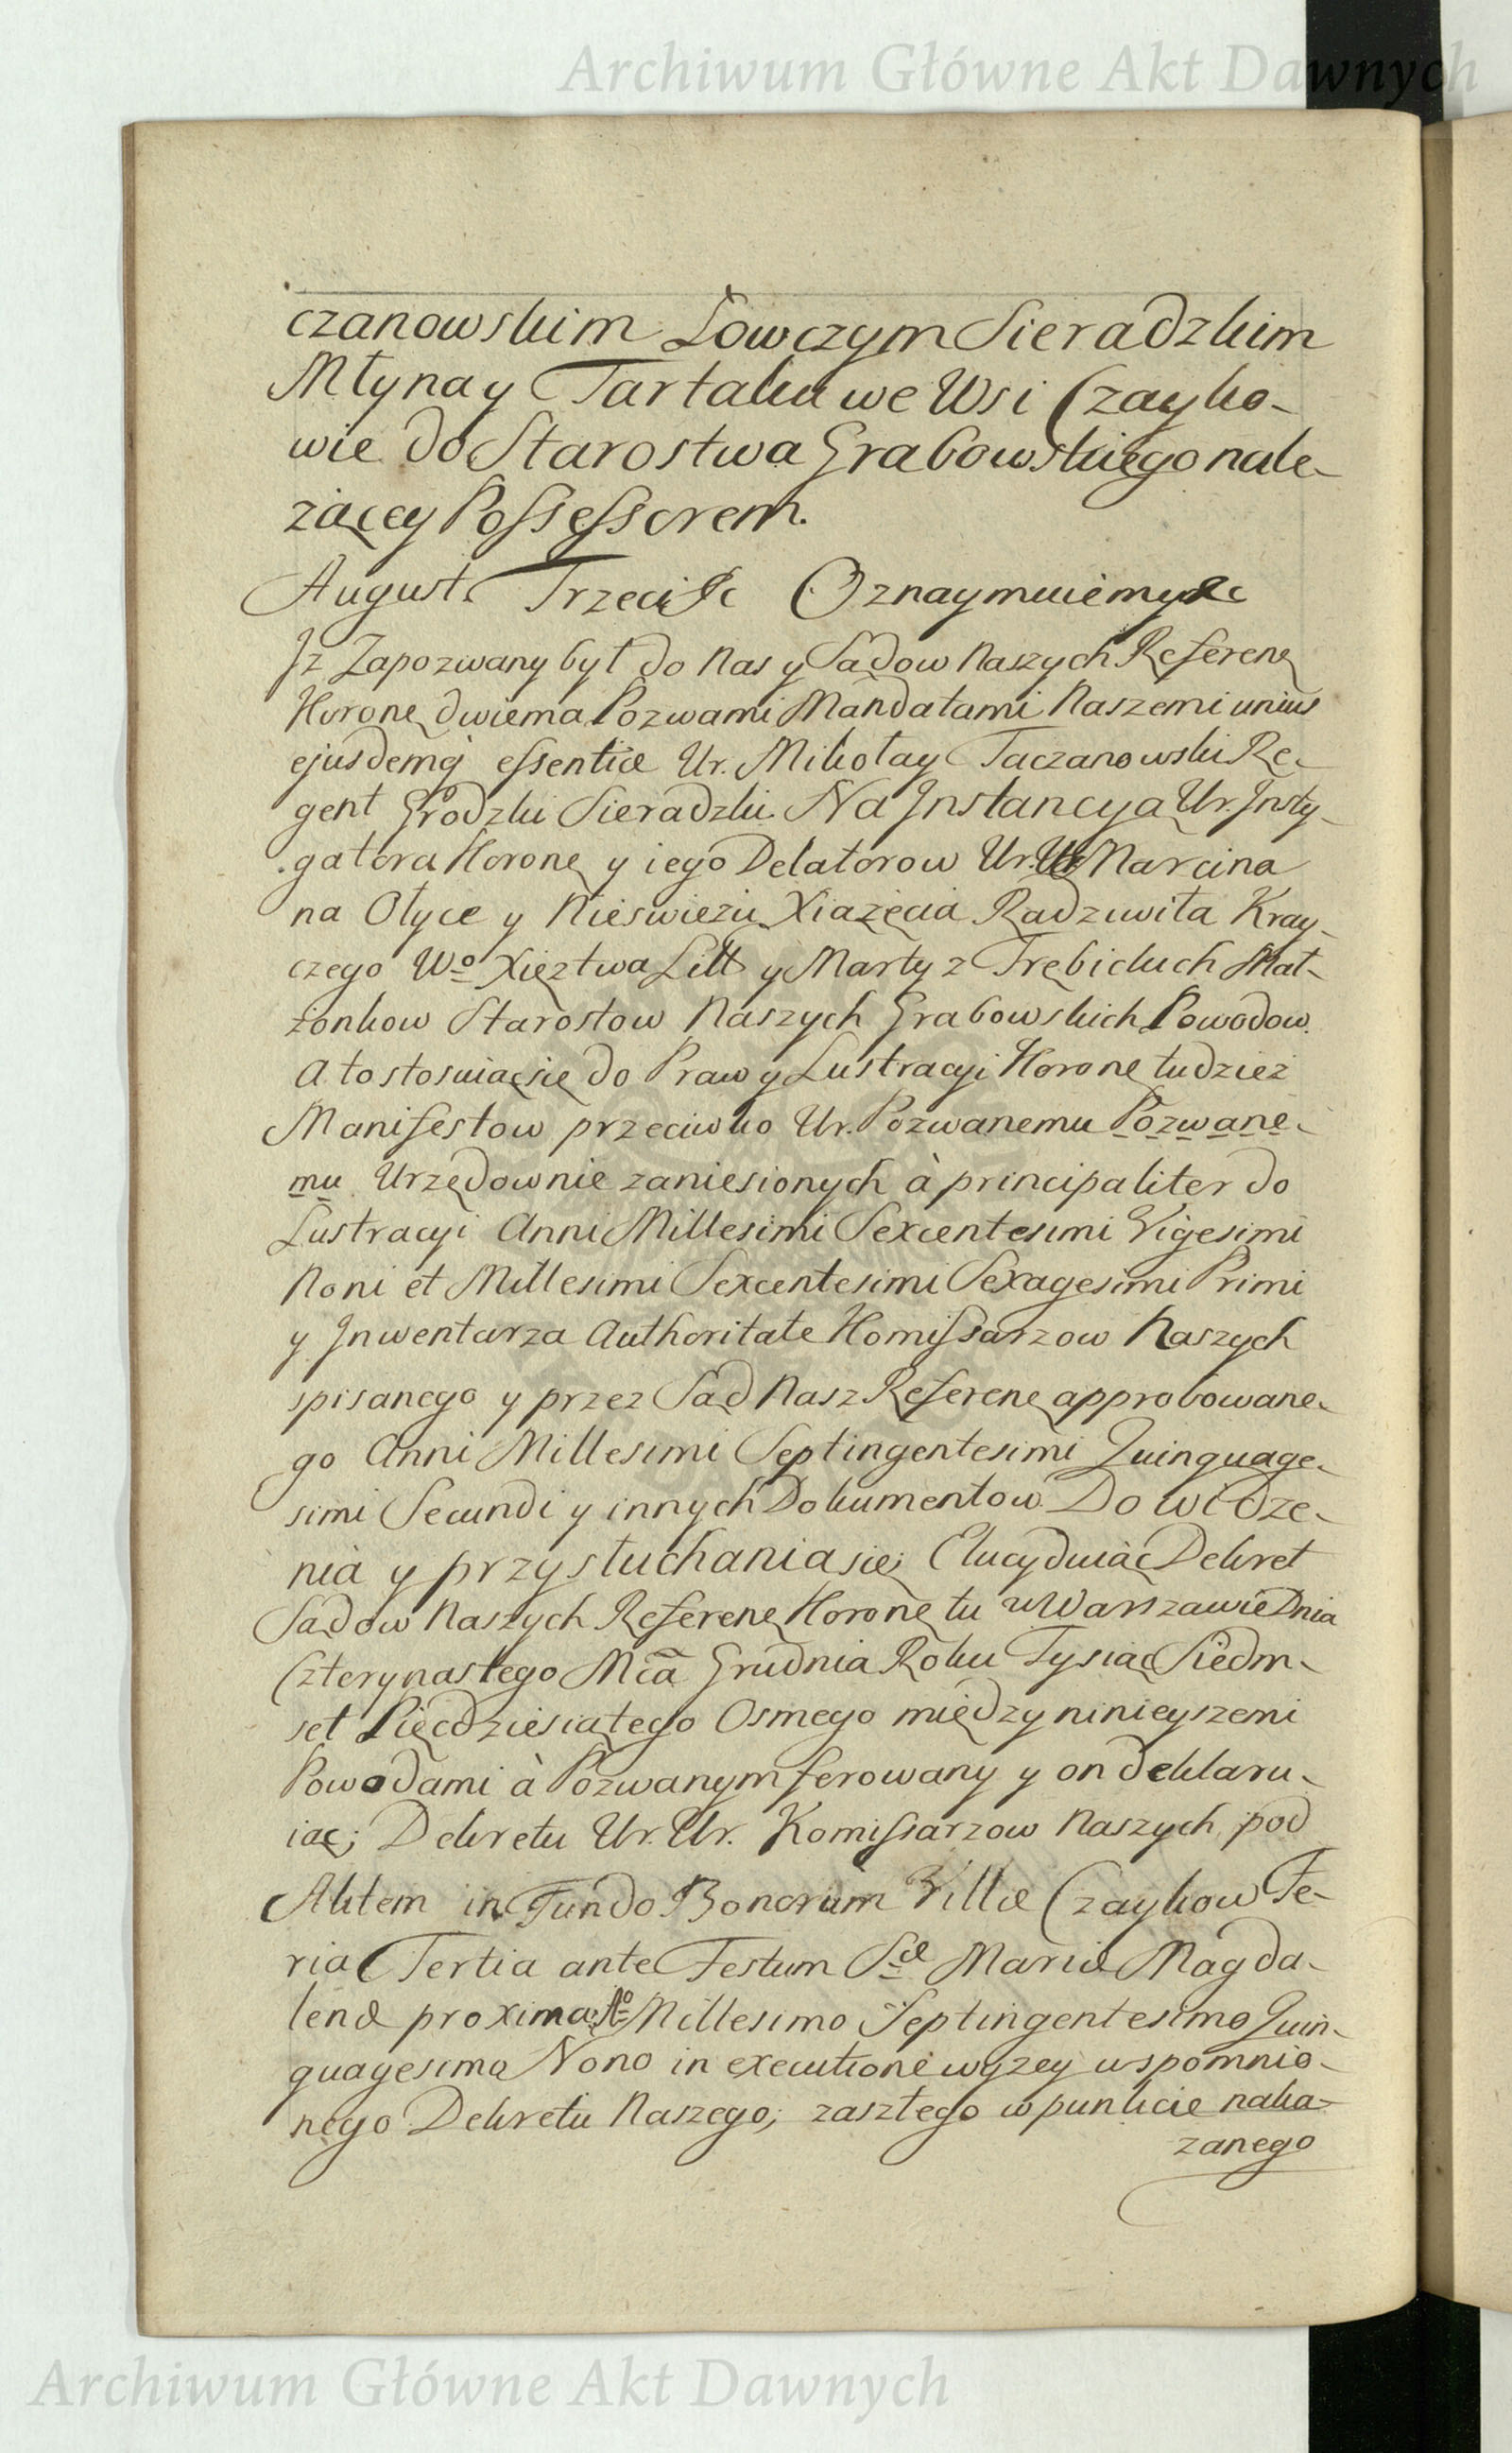 Archiwum Główne Akt Dawnych
czanowskim Łowczym Sieradzkim
Młyna y Tartaku we Wsi Czayko-
wie do Starostwa Grabowskiego nale-
żącey Possessorem.
August Trzeci &c Oznaymuiemy &c
Jż Zapozwany był do Nas y Sądow Naszych Referenc
Koronę dwiema Pozwami Mandatami Naszemi unius
ejusdemq essentiæ Ur. Mikołay Taczanowski Re-
gent Grodzki Sieradzki Na Jnstancyą Ur. Jnsty-
gatora Koronę y iego Delatorow Ur. Ur Marcina
na Ołyce y Nieswieżu Xiażęcia Radziwiła Kray-
czego Wo Xięztwa Litt y Marty z Trębickich Mał-
żonkow Starostow Naszych Grabowskich Powodow.
A to stosuiąc się do Praw y Lustracyi Koronę tudzież
Manifestow przeciwko Ur. Pozwanemu Pozwane-
mu Urzędownie zaniesionych à principaliter do
Lustracyi Anni Millesimi Sexcentesimi Vigesimi
Noni et Millesimi Sexcentesimi Sexagesimi Primi
y Jnwentarza Authoritate Komissarzow Naszych
spisanego y przez Sąd Nasz Referenc approbowane-
go Anni Millesimi Septingentesimi Quinquage-
simi Secundi y innych Dokumentow. Do widze-
nia y przysłuchania się; Elucyduiąc Dekret
Sądow Naszych Referenc Koronę tu w Warszawie Dnia
Czterynastego Mca Grudnia Roku Tysiąc Siedm-
set Pięcdziesiątego Osmego między ninieyszemi
Powodami à Pozwanym ferowany y on deklaru-
iąc; Dekretu Ur. Ur. Komissarzow Naszych pod
Aktem in Fundo Bonorum Villæ Czaykow Fe-
ria Tertia ante Festum Scæ Mariæ Magda-
lenæ proxima Ao Millesimo Septingentesimo Quin-
quagesimo Nono in executione wyzey wspomnio-
nego Dekretu Naszego; zaszłego w punkcie naka-
zanego
Archiwum Główne Akt Dawnych